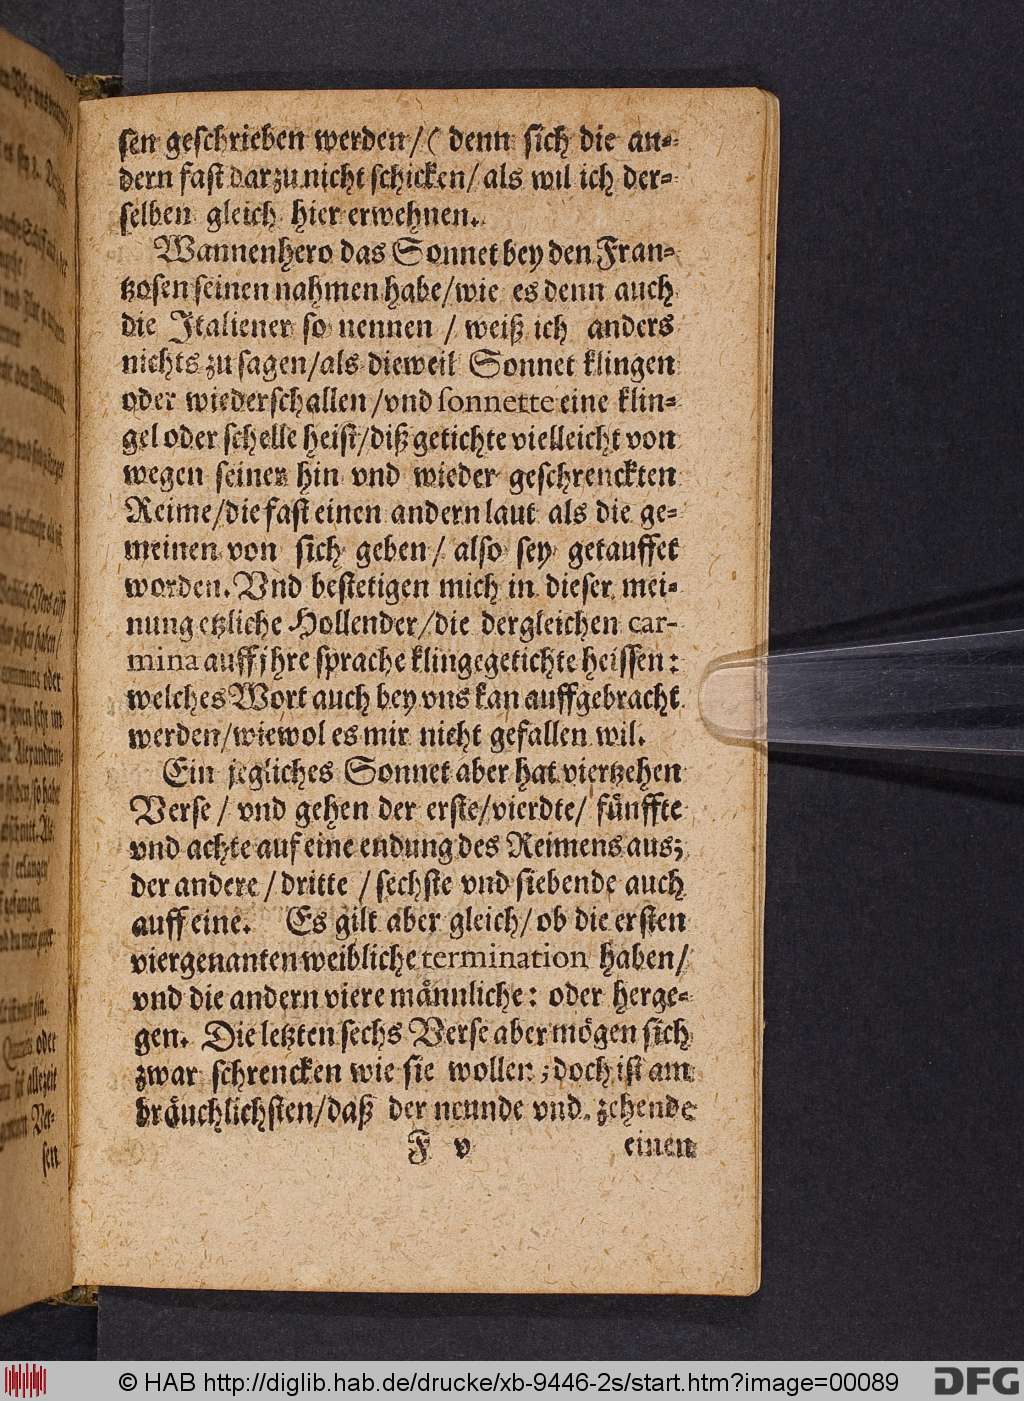 sen geschrieben werden/( denn sich die an⸗
dern fast darzu nicht schicken/ als wil ich der⸗
selben gleich hier erwehnen.
Wannenhero das Sonnet bey den Fran⸗
tzosen seinen nahmen habe/wie es denn auch
die Jtaliener so nennen / weiß ich anders
nichts zu sagen/als dieweil Sonnet klingen
oder wiederschallen/vnd sonnette eine klin⸗
gel oder schelle heist/diß getichte vielleicht von
wegen seiner hin vnd wieder geschrenckten
Reime/die fast einen andern laut als die ge⸗
meinen von sich geben/ also sey getauffet
worden. Vnd bestetigen mich in dieser mei⸗
nung etzliche Hollender/die dergleichen car-
mina auff jhre sprache klingegetichte heissen:
welches Wort auch bey vns kan auffgebracht
werden/wiewol es mir nicht gefallen wil.
Ein jegliches Sonnet aber hat viertzehen
Verse/ vnd gehen der erste/vierdte/ fünffte
vnd achte auf eine endung des Reimens aus;
der andere/dritte / sechste vnd siebende auch
auff eine. Es gilt aber gleich/ob die ersten
vier genanten weibliche termination haben/
vnd die andern viere männliche: oder herge⸗
gen. Die letzten sechs Verse aber mögen sich
zwar schrencken wie sie wollen; doch ist am
bräuchlichsten/daß der neunde vnd zehende
F v einen
© HAB http://diglib.hab.de/drucke/xb-9446-2s/start.htm?image=00089
DFG